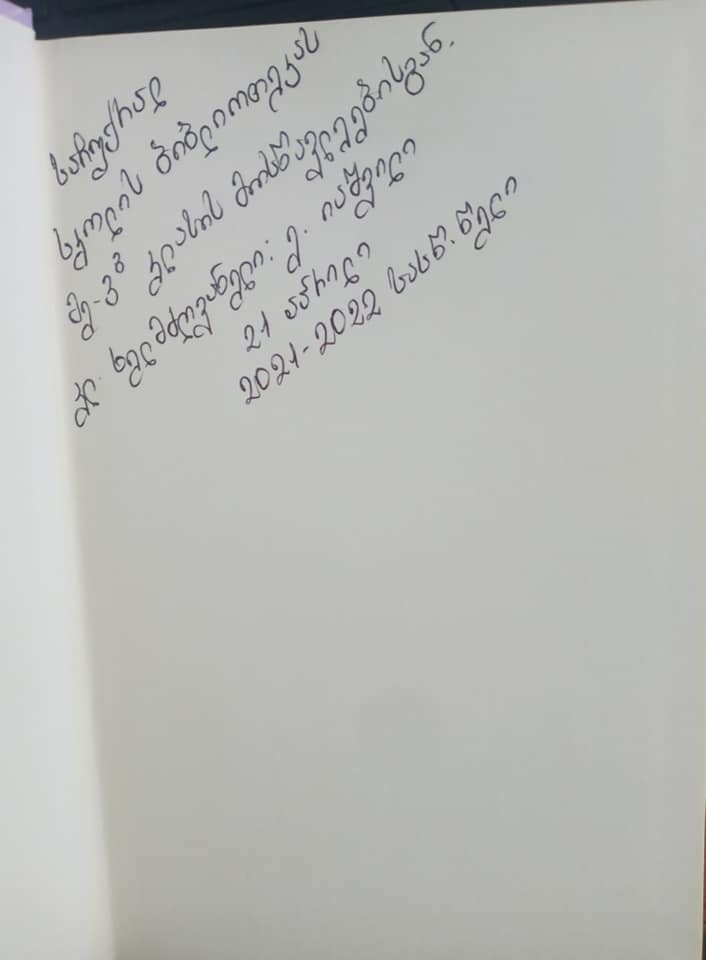 საჩუქრად
სკოლის ბიბლიოთეკას
მე-3³ კლასის მოსწავლეებისგან.
კლ. ხელმძღვანელი: ე. იაშვილი
21 აპრილი
2021-2022 სასწ. წელი